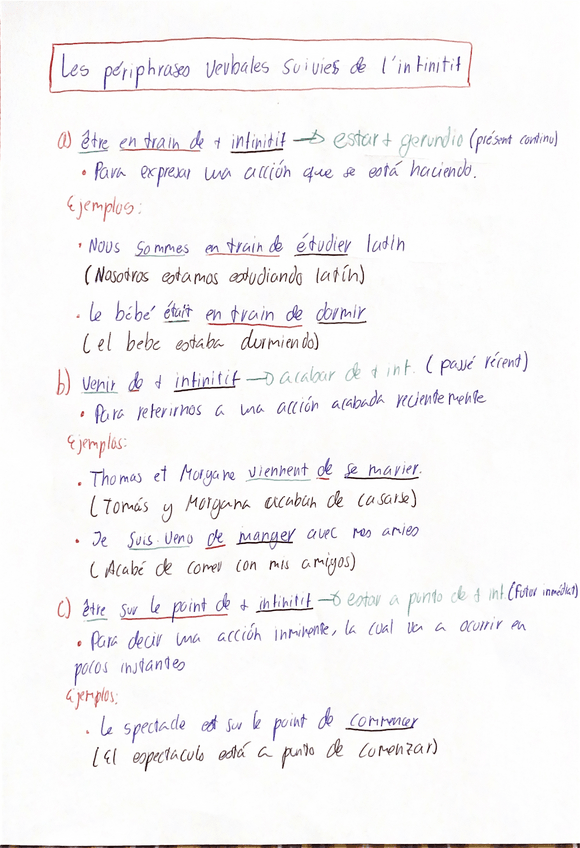 Les périphrases verbales suivies de l'infinitif
a) être en train de + infinitif → estar + gerundio (présent continu)
• Para expresar una acción que se está haciendo.
Ejemplos:
• Nous sommes en train de étudier latin
(Nosotros estamos estudiando latín)
• Le bébé était en train de dormir
(el bebe estaba durmiendo)
b) Venir de + infinitif → acabar de + inf. (passé récent)
• Para referirnos a una acción acabada recientemente
Ejemplos:
• Thomas et Morgane viennent de se marier.
(Tomás y Morgana acaban de casarse)
• Je suis venu de manger avec mes amies
(Acabé de comer con mis amigos)
c) être sur le point de + infinitif → estar a punto de + inf (Futur inmédiat)
• Para decir una acción inminente, la cual va a ocurrir en
pocos instantes
Ejemplos:
• Le spectacle est sur le point de commencer
(El espectaculo está a punto de comenzar)